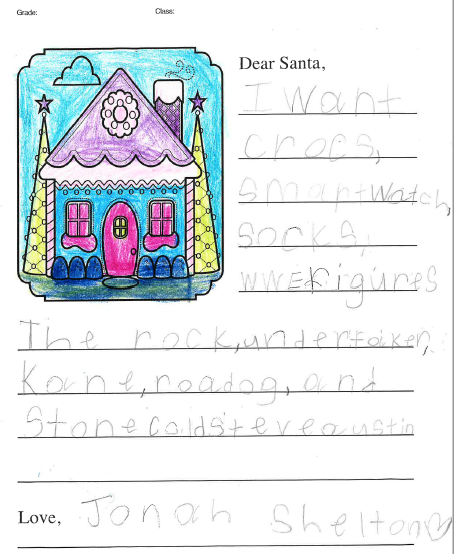 Grade: Class:
Dear Santa,
I want
crocs,
smartwatch,
socks,
WWE Figures
The rock, undertaker,
Kane, roadog, and
Stone Coldsteveaustin
.
Love, Jonah Shelton